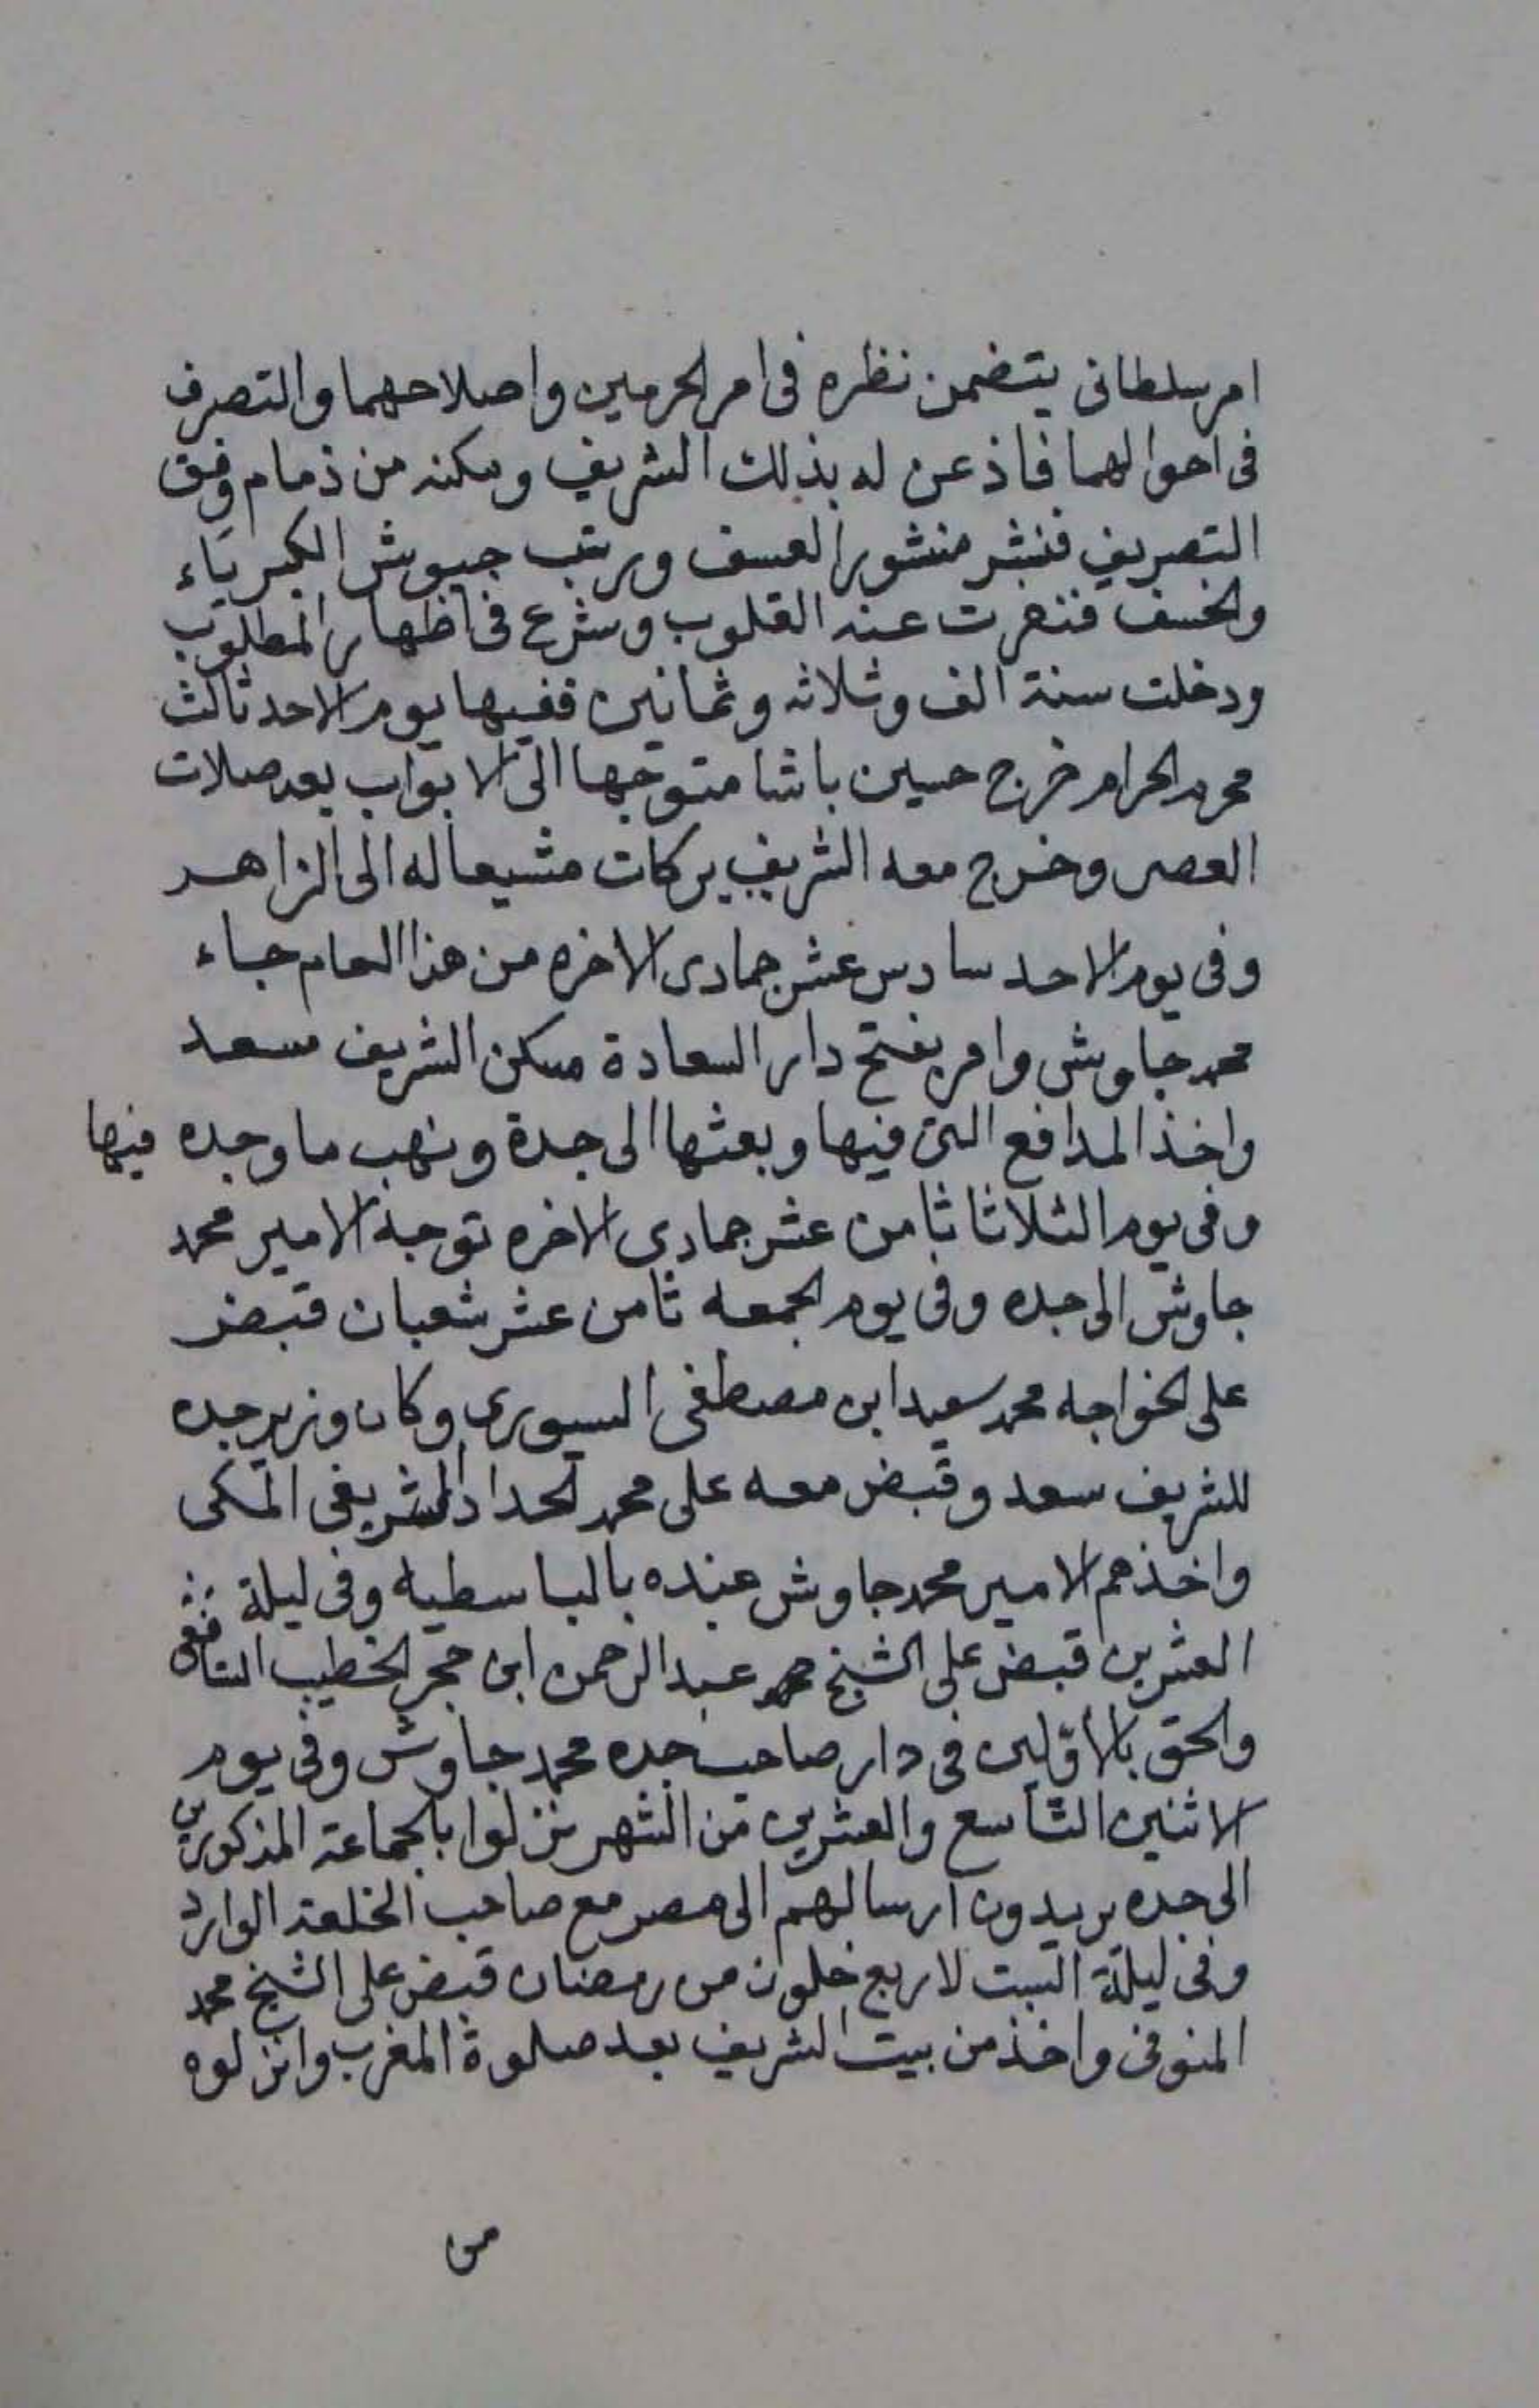 امر سلطانى يتضمن نظره فى امر الحرمين واصلاحهما والتصرف
فى احوالهما فاذعن له بذلك الشريف ومكنه من ذمام وفق
التصريف فنشر منشور العسف ورتب جيوش الكبرياء
والخسف فنفرت عنه القلوب وشرع فى اظهار المطلوب
ودخلت سنة الف وثلاثه وثمانين ففيها يوم الاحد ثالث
محرم الحرام خرج حسين باشا متوجها الى الابواب بعد صلات
العصر وخرج معه الشريف بركات مشيعا له الى الزاهر
وفى يوم الاحد سادس عشر جمادى الاخره من هذا العام جاء
محمد جاويش وامر بفتح دار السعادة مسكن الشريف سعد
واخذ المدافع التى فيها وبعثها الى جدة ونهب ما وجده فيها
وفى يوم الثلاثا ثامن عشر جمادى الاخره توجه الامير محمد
جاوش الى جده وفى يوم الجمعه ثامن عشر شعبان قبض
على الخواجه محمد سعيد ابن مصطفى السيورى وكان وزير جده
للشريف سعد وقبض معه على محمد الحداد الشريفى المكى
واخذهم الامير محمد جاوش عنده بالباسطيه وفى ليلة
العشرين قبض على الشيخ محمد عبد الرحمن ابن حجر الخطيب الشافعى
والحق بالأوّلين فى دار صاحب جده محمد جاوش وفى يوم
الاثنين التاسع والعشرين من الشهر نزلوا بالجماعة المذكورين
الى جده يريدون ارسالهم الى مصر مع صاحب الخلعة الوارد
وفى ليلة السبت لاربع خلون من رمضان قبض على الشيخ محمد
المنوفى واخذ من بيت الشريف بعد صلوة المغرب وانزلوه
من